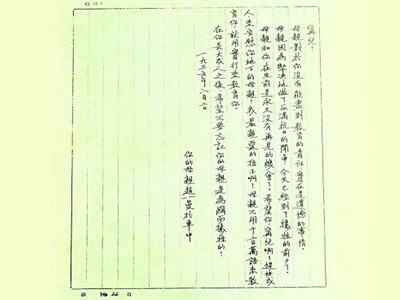 寧兒：
母親對於你沒有能盡到教育的責任，實在是遺憾的事情。
母親因為堅決地做了反滿抗日的鬥爭，今天已經到了犧牲的前夕了。
母親和你在生前是永久沒有再見的機會了。希望你，寧兒啊！趕快成
人，來安慰你地下的母親！我最親愛的孩子啊！母親不用千言萬語來教
育你，就用實行來教育你。
在你長大成人之後，希望不要忘記你的母親是為國而犧牲的！
一九三六年八月二日
你的母親趙一曼於車中
第 頁